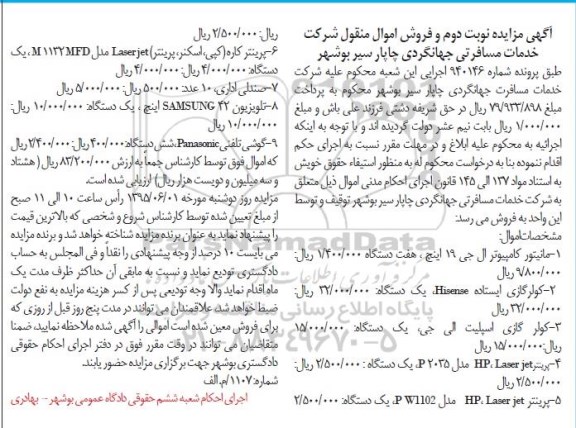 آگهی مزایده نوبت دوم و فروش اموال منقول شرکت
خدمات مسافرتی جهانگردی چاپار سیر بوشهر
طبق پرونده شماره ۹۴۰۱۴۶ اجرایی این شعبه محکوم علیه شرکت
خدمات مسافرت جهانگردی چاپار سیر بوشهر محکوم به پرداخت
مبلغ ۷۹/۹۳۳/۸۹۸ ریال در حق شریفه دشتی فرزند علی باش و مبلغ
۱/۰۰۰/۰۰۰ ریال بابت نیم عشر دولت گردیده اند و با توجه به اینکه
اجرائیه به محکوم علیه ابلاغ و در مهلت مقرر نسبت به اجرای حکم
اقدام ننموده بنا به درخواست محکوم له به منظور استیفاء حقوق خویش
به استناد مواد ۱۳۷ الی ۱۴۵ قانون اجرای احکام مدنی اموال ذیل متعلق
به شرکت خدمات مسافرتی جهانگردی چاپار سیر بوشهر توقیف و توسط
این واحد به فروش می رسد:
مشخصات اموال:
۱-مانیتور کامپیوتر ال جی ۱۹ اینچ ، هفت دستگاه ۱/۴۰۰/۰۰۰ ریال:
۹/۸۰۰/۰۰۰ ریال
۲-کولر گازی ایستاده Hisense، یک دستگاه: ۳۲/۰۰۰/۰۰۰ ریال:
۳۲/۰۰۰/۰۰۰ ریال
۳-کولر گازی اسپلیت ال جی، یک دستگاه: ۱۵/۰۰۰/۰۰۰
ریال:۱۵/۰۰۰/۰۰۰ ریال
۴-پرینتر HP، Laser jet مدل P ۲۰۳۵، یک دستگاه: ۲/۵۰۰/۰۰۰ ریال:
۲/۵۰۰/۰۰۰ ریال
۵-پرینتر HP، Laser jet مدل P W1102، یک دستگاه: ۲/۵۰۰/۰۰۰
ریال: ۲/۵۰۰/۰۰۰ ریال
۶-پرینتر کاره (کپی، اسکنر، پرینتر) Laser jet مدل M ۱۱۳۲ MFD ، یک
دستگاه: ۴/۰۰۰/۰۰۰ ریال: ۴/۰۰۰/۰۰۰ ریال
۷-صندلی اداری، ۱۰ عدد: ۵۰۰/۰۰۰ ریال: ۵/۰۰۰/۰۰۰ ریال
۸-تلویزیون SAMSUNG ۴۲ اینچ ، یک دستگاه: ۱۰/۰۰۰/۰۰۰ ریال:
۱۰/۰۰۰/۰۰۰ ریال
۹-گوشی تلفنی Panasonic، شش دستگاه: ۴۰۰/۰۰۰ ریال: ۲/۴۰۰/۰۰۰ ریال
که اموال فوق توسط کارشناس جمعاً به ارزش ۸۳/۲۰۰/۰۰۰ ریال (هشتاد
و سه میلیون و دویست هزار ریال) ارزیابی شده است.
مزایده روز دوشنبه مورخه ۱۳۹۵/۰۶/۰۱ رأس ساعت ۱۰ الی ۱۱ صبح
از مبلغ تعیین شده توسط کارشناس شروع و شخصی که بالاترین قیمت
را پیشنهاد نماید به عنوان برنده مزایده شناخته خواهد شد و برنده مزایده
می بایست ۱۰ درصد از وجه پیشنهادی را نقداً و فی المجلس به حساب
دادگستری تودیع نماید و نسبت به مابقی آن حداکثر ظرف مدت یک
ماه اقدام نماید والا وجه تودیعی پس از کسر هزینه مزایده به نفع دولت
ضبط خواهد شد. علاقمندان می توانند در مدت پنج روز قبل از روزی که
برای فروش معین شده است اموالی را آگهی شده ملاحظه نمایید، ضمنا
متقاضیان می توانند در وقت مقرر فوق در دفتر اجرای احکام حقوقی
دادگستری بوشهر جهت برگزاری مزایده حضور یابند.
شماره:۱۱۰۷/م.الف
اجرای احکام شعبه ششم حقوقی دادگاه عمومی بوشهر – بهادری